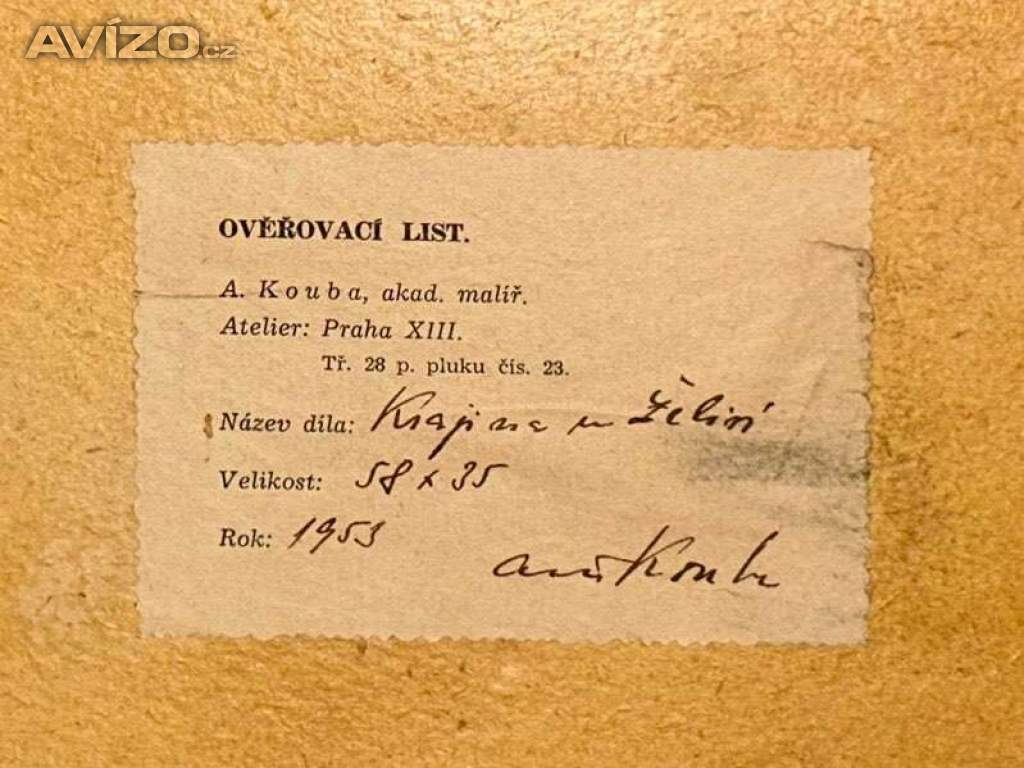 AVÍZO.cz
OVĚŘOVACÍ LIST.
A. Kouba, akad. malíř.
Atelier: Praha XIII.
Tř. 28 p. pluku čís. 23.
Název díla: Krajina u Želivi
Velikost: 58 x 35
Rok: 1953
Kouba